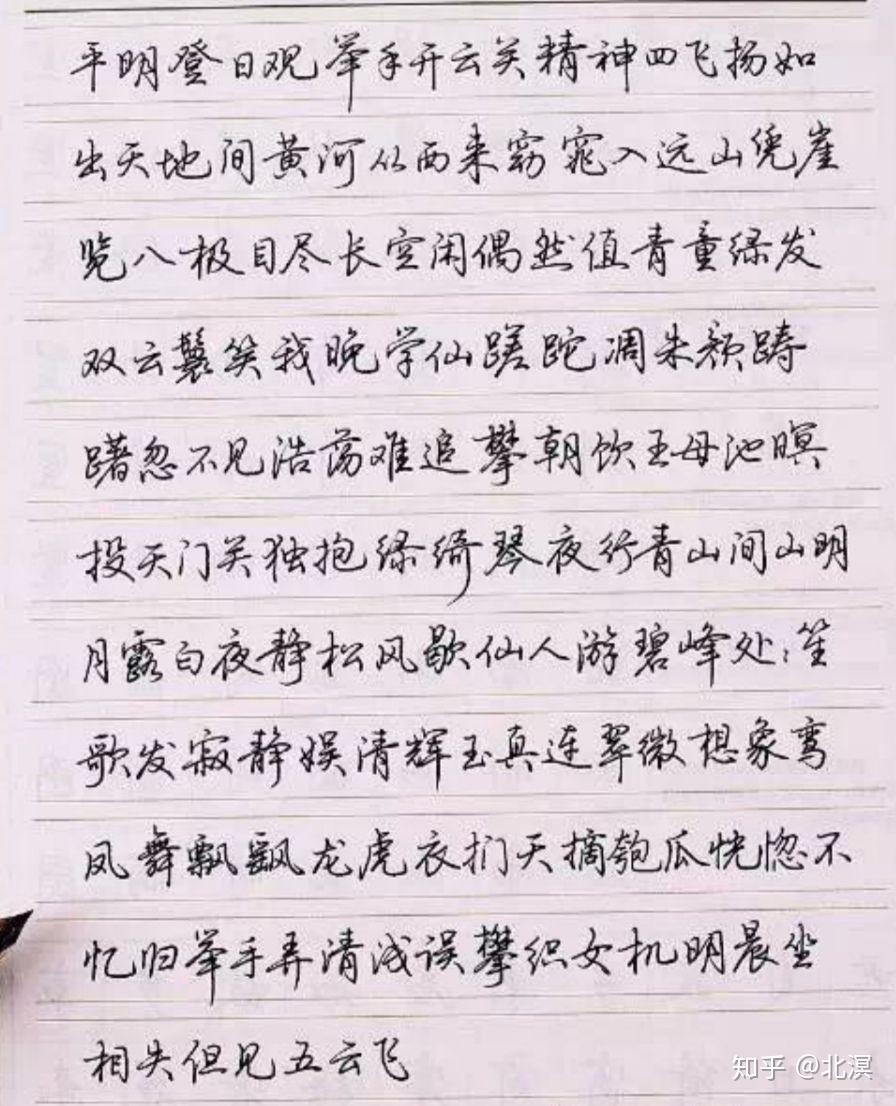 平明登日观举手开云关精神四飞扬如
出天地间黄河从西来窈窕入远山凭崖
览八极目尽长空闲偶然值青童绿发
双云鬟笑我晚学仙蹉跎凋朱颜踌
躇忽不见浩荡难追攀朝饮王母池暝
投天门关独抱绿绮琴夜行青山间山明
月露白夜静松风歇仙人游碧峰处:笙
歌发寂静娱清辉玉真连翠微想象鸾
凤舞飘飖龙虎衣扪天摘匏瓜恍惚不
忆归举手弄清浅误攀织女机明晨坐
相失但见五云飞
知乎 @北溟